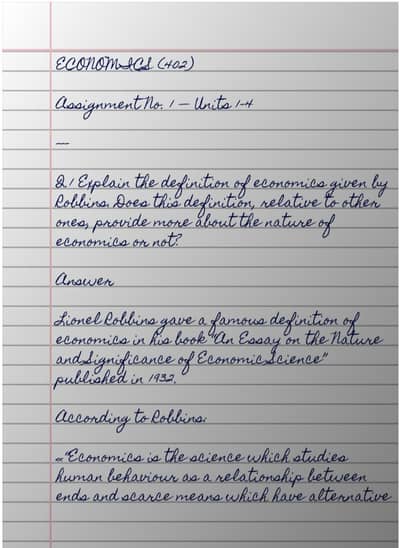 ECONOMICS (402)
Assignment No. 1 – Units 1-4
—
Q.1 Explain the definition of economics given by
Robbins. Does this definition, relative to other
ones, provide more about the nature of
economics or not?
Answer
Lionel Robbins gave a famous definition of
economics in his book "An Essay on the Nature
and Significance of Economic Science"
published in 1932.
According to Robbins:
"Economics is the science which studies
human behaviour as a relationship between
ends and scarce means which have alternative